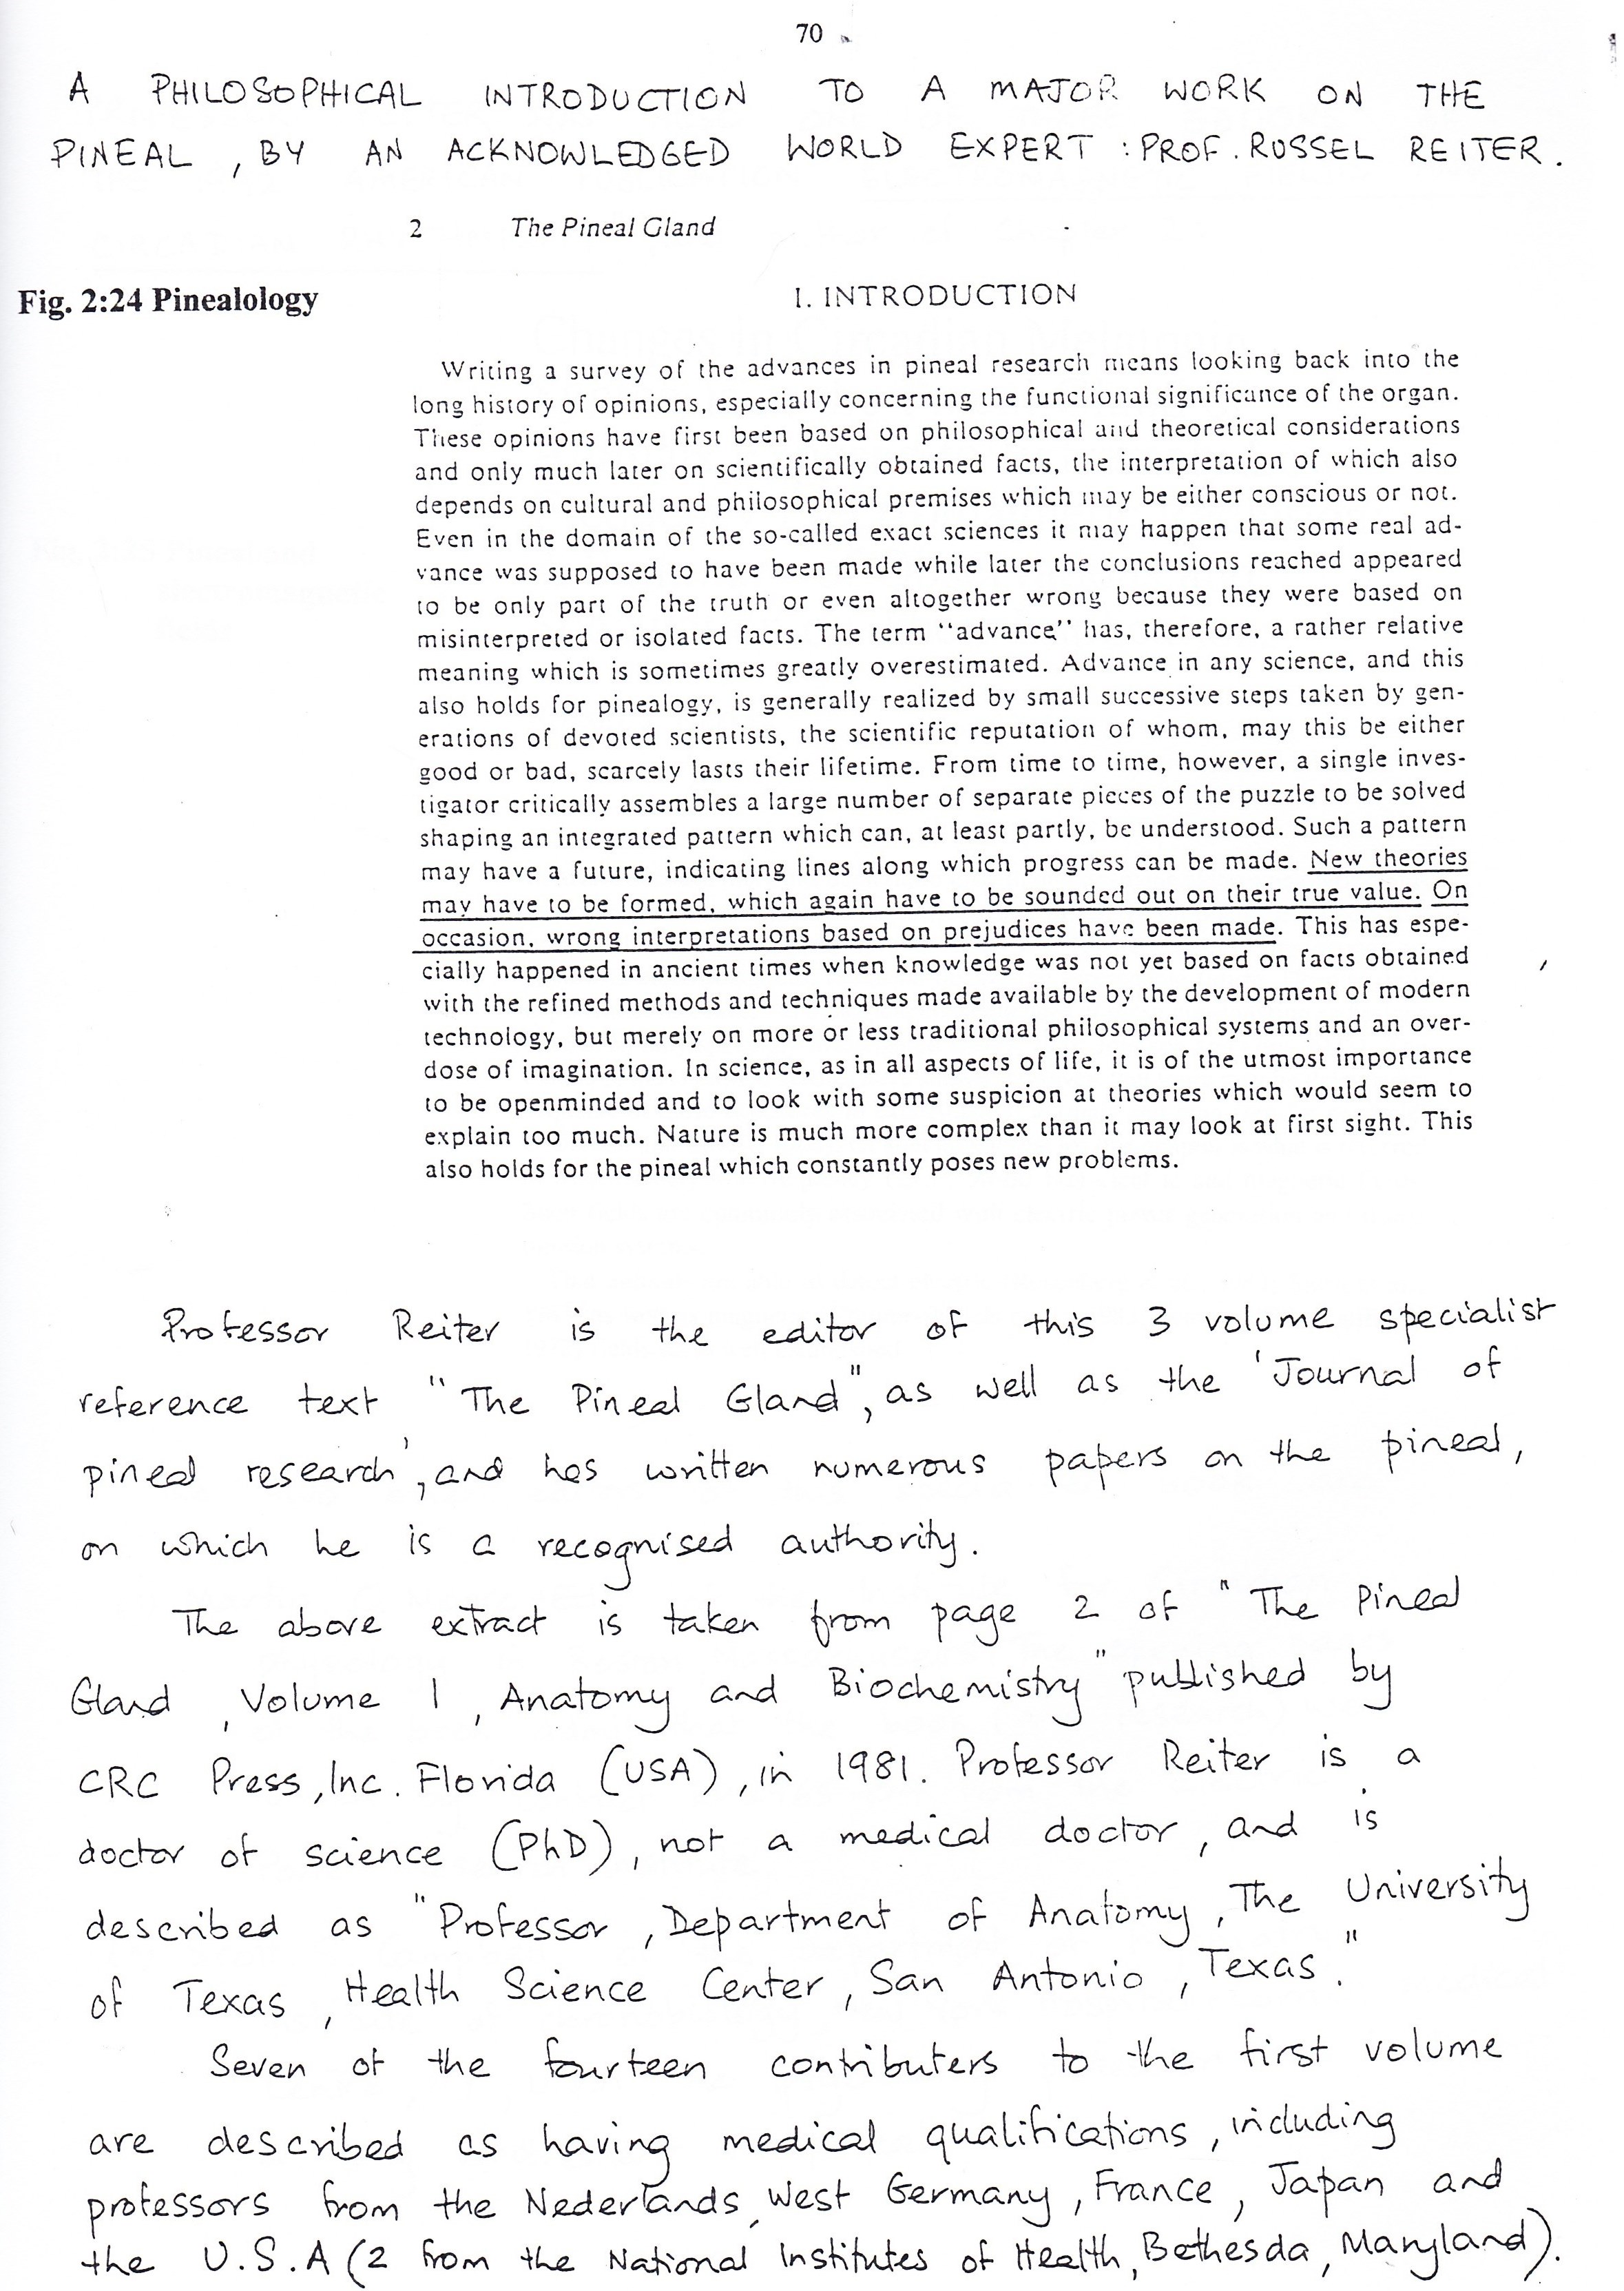 70
A PHILOSOPHICAL INTRODUCTION TO A MAJOR WORK ON THE
PINEAL, BY AN ACKNOWLEDGED WORLD EXPERT : PROF. RUSSEL REITER.
2 The Pineal Gland
Fig. 2:24 Pinealology
I. INTRODUCTION
Writing a survey of the advances in pineal research means looking back into the
long history of opinions, especially concerning the functional significance of the organ.
These opinions have first been based on philosophical and theoretical considerations
and only much later on scientifically obtained facts, the interpretation of which also
depends on cultural and philosophical premises which may be either conscious or not.
Even in the domain of the so-called exact sciences it may happen that some real ad-
vance was supposed to have been made while later the conclusions reached appeared
to be only part of the truth or even altogether wrong because they were based on
misinterpreted or isolated facts. The term "advance" has, therefore, a rather relative
meaning which is sometimes greatly overestimated. Advance in any science, and this
also holds for pinealogy, is generally realized by small successive steps taken by gen-
erations of devoted scientists, the scientific reputation of whom, may this be either
good or bad, scarcely lasts their lifetime. From time to time, however, a single inves-
tigator critically assembles a large number of separate pieces of the puzzle to be solved
shaping an integrated pattern which can, at least partly, be understood. Such a pattern
may have a future, indicating lines along which progress can be made. New theories
may have to be formed, which again have to be sounded out on their true value. On
occasion, wrong interpretations based on prejudices have been made. This has espe-
cially happened in ancient times when knowledge was not yet based on facts obtained
with the refined methods and techniques made available by the development of modern
technology, but merely on more or less traditional philosophical systems and an over-
dose of imagination. In science, as in all aspects of life, it is of the utmost importance
to be openminded and to look with some suspicion at theories which would seem to
explain too much. Nature is much more complex than it may look at first sight. This
also holds for the pineal which constantly poses new problems.
Professor Reiter is the editor of this 3 volume specialist
reference text "The Pineal Gland", as well as the 'Journal of
pineal research', and has written numerous papers on the pineal,
on which he is a recognised authority.
The above extract is taken from page 2 of "The Pineal
Gland, Volume 1, Anatomy and Biochemistry" published by
CRC Press, Inc. Florida (USA), in 1981. Professor Reiter is a
doctor of science (PhD), not a medical doctor, and is
described as "Professor, Department of Anatomy, The University
of Texas, Health Science Center, San Antonio, Texas."
Seven of the fourteen contributers to the first volume
are described as having medical qualifications, including
professors from the Nederlands, West Germany, France, Japan and
the U.S.A (2 from the National Institutes of Health, Bethesda, Maryland).